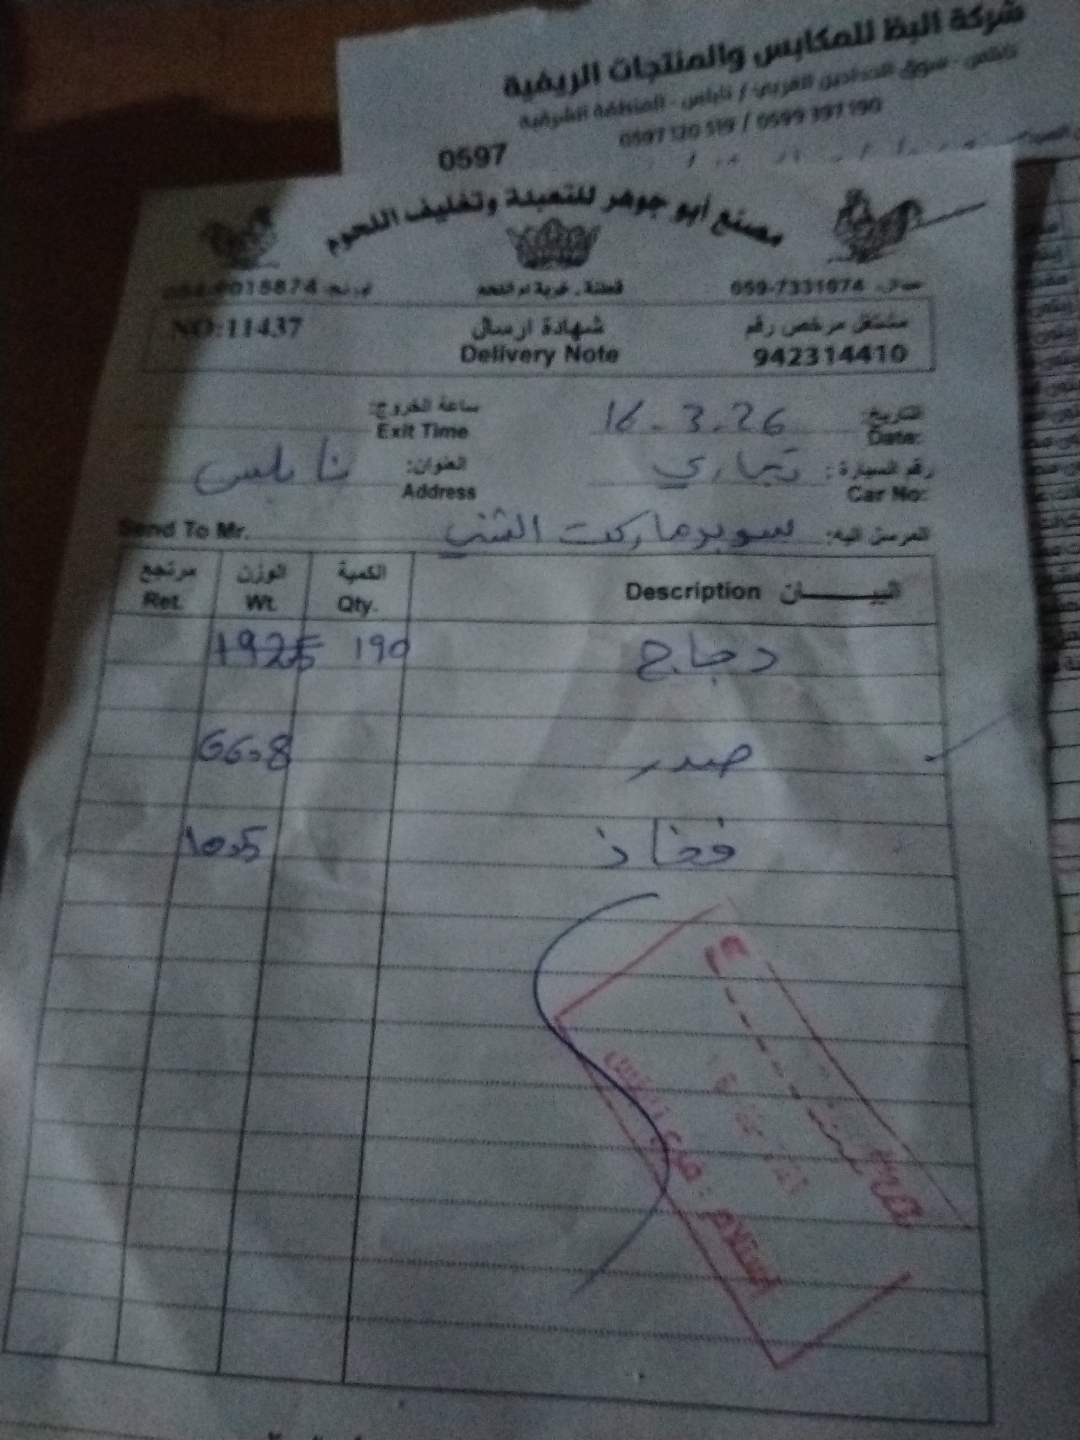 شركة البظ للمكابس والمنتجات الريفية
نابلس - سوق الحدادين الغربي / نابلس - المنطقة الشرقية
0597 120 519 / 0599 397 190
0597
مصنع أبو جوهر للتعبئة وتغليف اللحوم
059-7331974 قطنة - خربة ام اللحم
مشتغل مرخص رقم شهادة ارسال NO:11437
942314410 Delivery Note
التاريخ: 16.3.26 ساعة الخروج:
Date: Exit Time
رقم السيارة: تجاري العنوان: نابلس
Car No: Address
المرسل اليه: سوبرماركت الشني Send To Mr.
البيـــــان Description الكمية الوزن مرتجع
Qty. Wt. Ret.
دجاج 190 1925
صدر 66.8
فخاذ 10.5
استلام